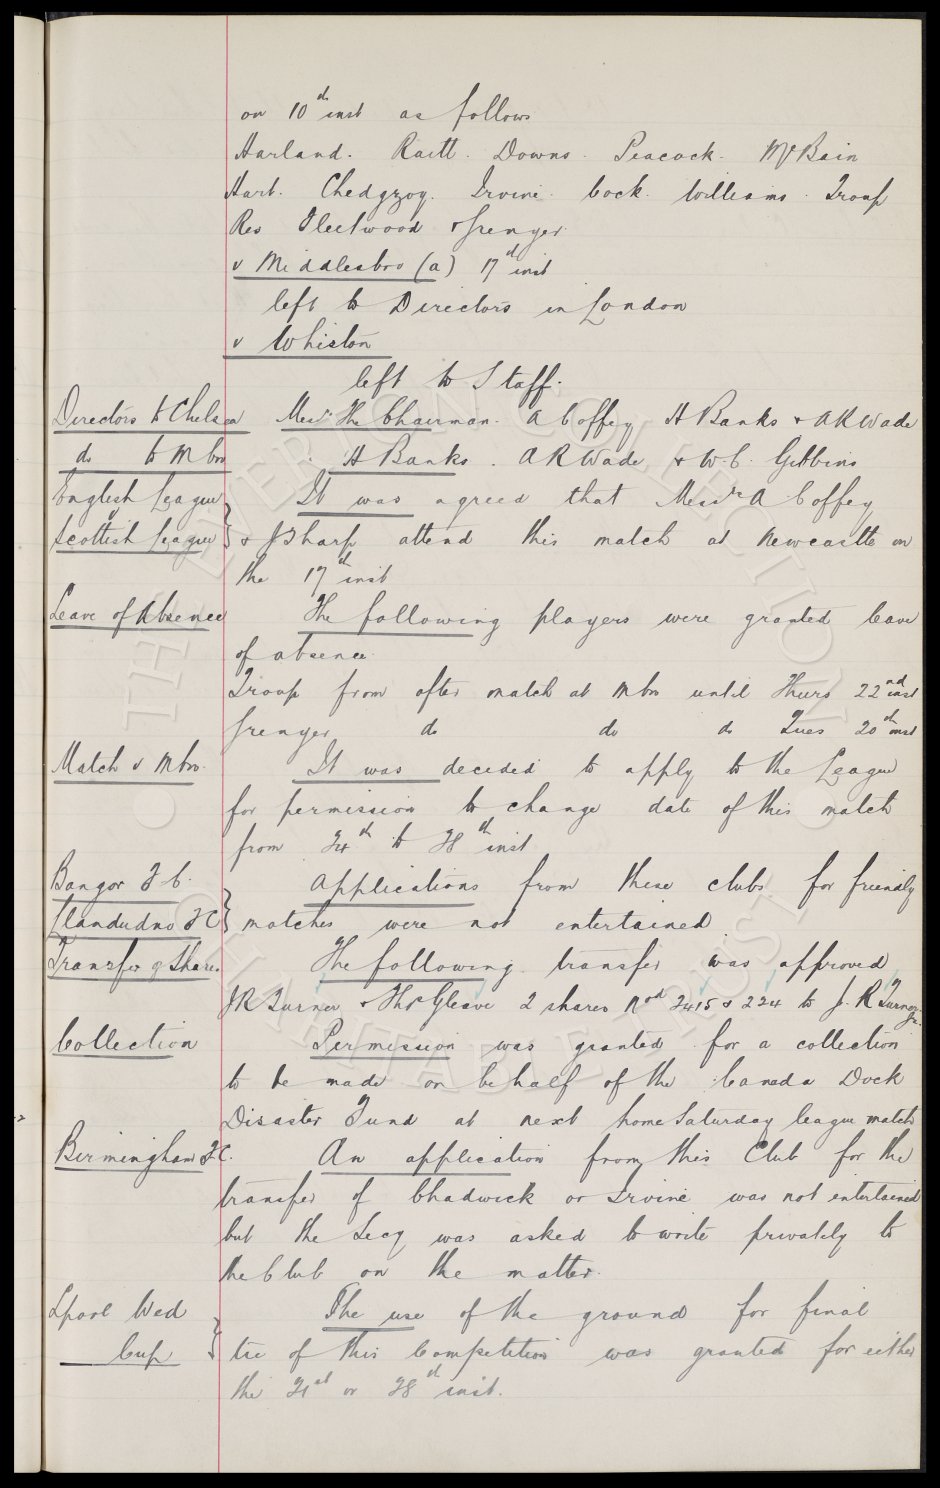 on 10th inst as follows
Harland. Raitt. Downs. Peacock. McBain
Hart. Chedgzoy. Irvine. Cock. Williams. Troup
Res Fleetwood & Spencer.
v Middlesbro (a) 17th inst
left to Directors in London
v Whiston
left to Staff.
Directors to Chelsea Messrs The Chairman. A Coffey H Banks & A R Wade
do to Mbro H Banks. A R Wade & W. C. Gibbins
English League It was agreed that Messrs A Coffey
v
Scottish League & J Sharp attend this match at Newcastle on
the 17th inst
Leave of Absence The following players were granted leave
of absence.
Troup from after match at Mbro until Thurs 22nd inst
Spencer do do do Tues 20th inst
Match v Mbro. It was decided to apply to the League
for permission to change date of this match
from 24th to 28th inst
Bangor F C. Applications from these clubs for friendly
Llandudno F C matches were not entertained
Transfer of Shares The following transfer was approved
J R Turner & Thos Gleave 2 shares Nos 2415 & 224 to J. R Turner Jr.
Collection Permission was granted for a collection
to be made on behalf of the Canada Dock
Disaster Fund at next home Saturday league match
Birmingham F C. An application from this Club for the
transfer of Chadwick or Irvine was not entertained
but the Secy was asked to write privately to
the Club on the matter.
Lpool Wed The use of the ground for final
Cup tie of this Competition was granted for either
the 21st or 28th inst.
THE EVERTON COLLECTION
CHARITABLE TRUST